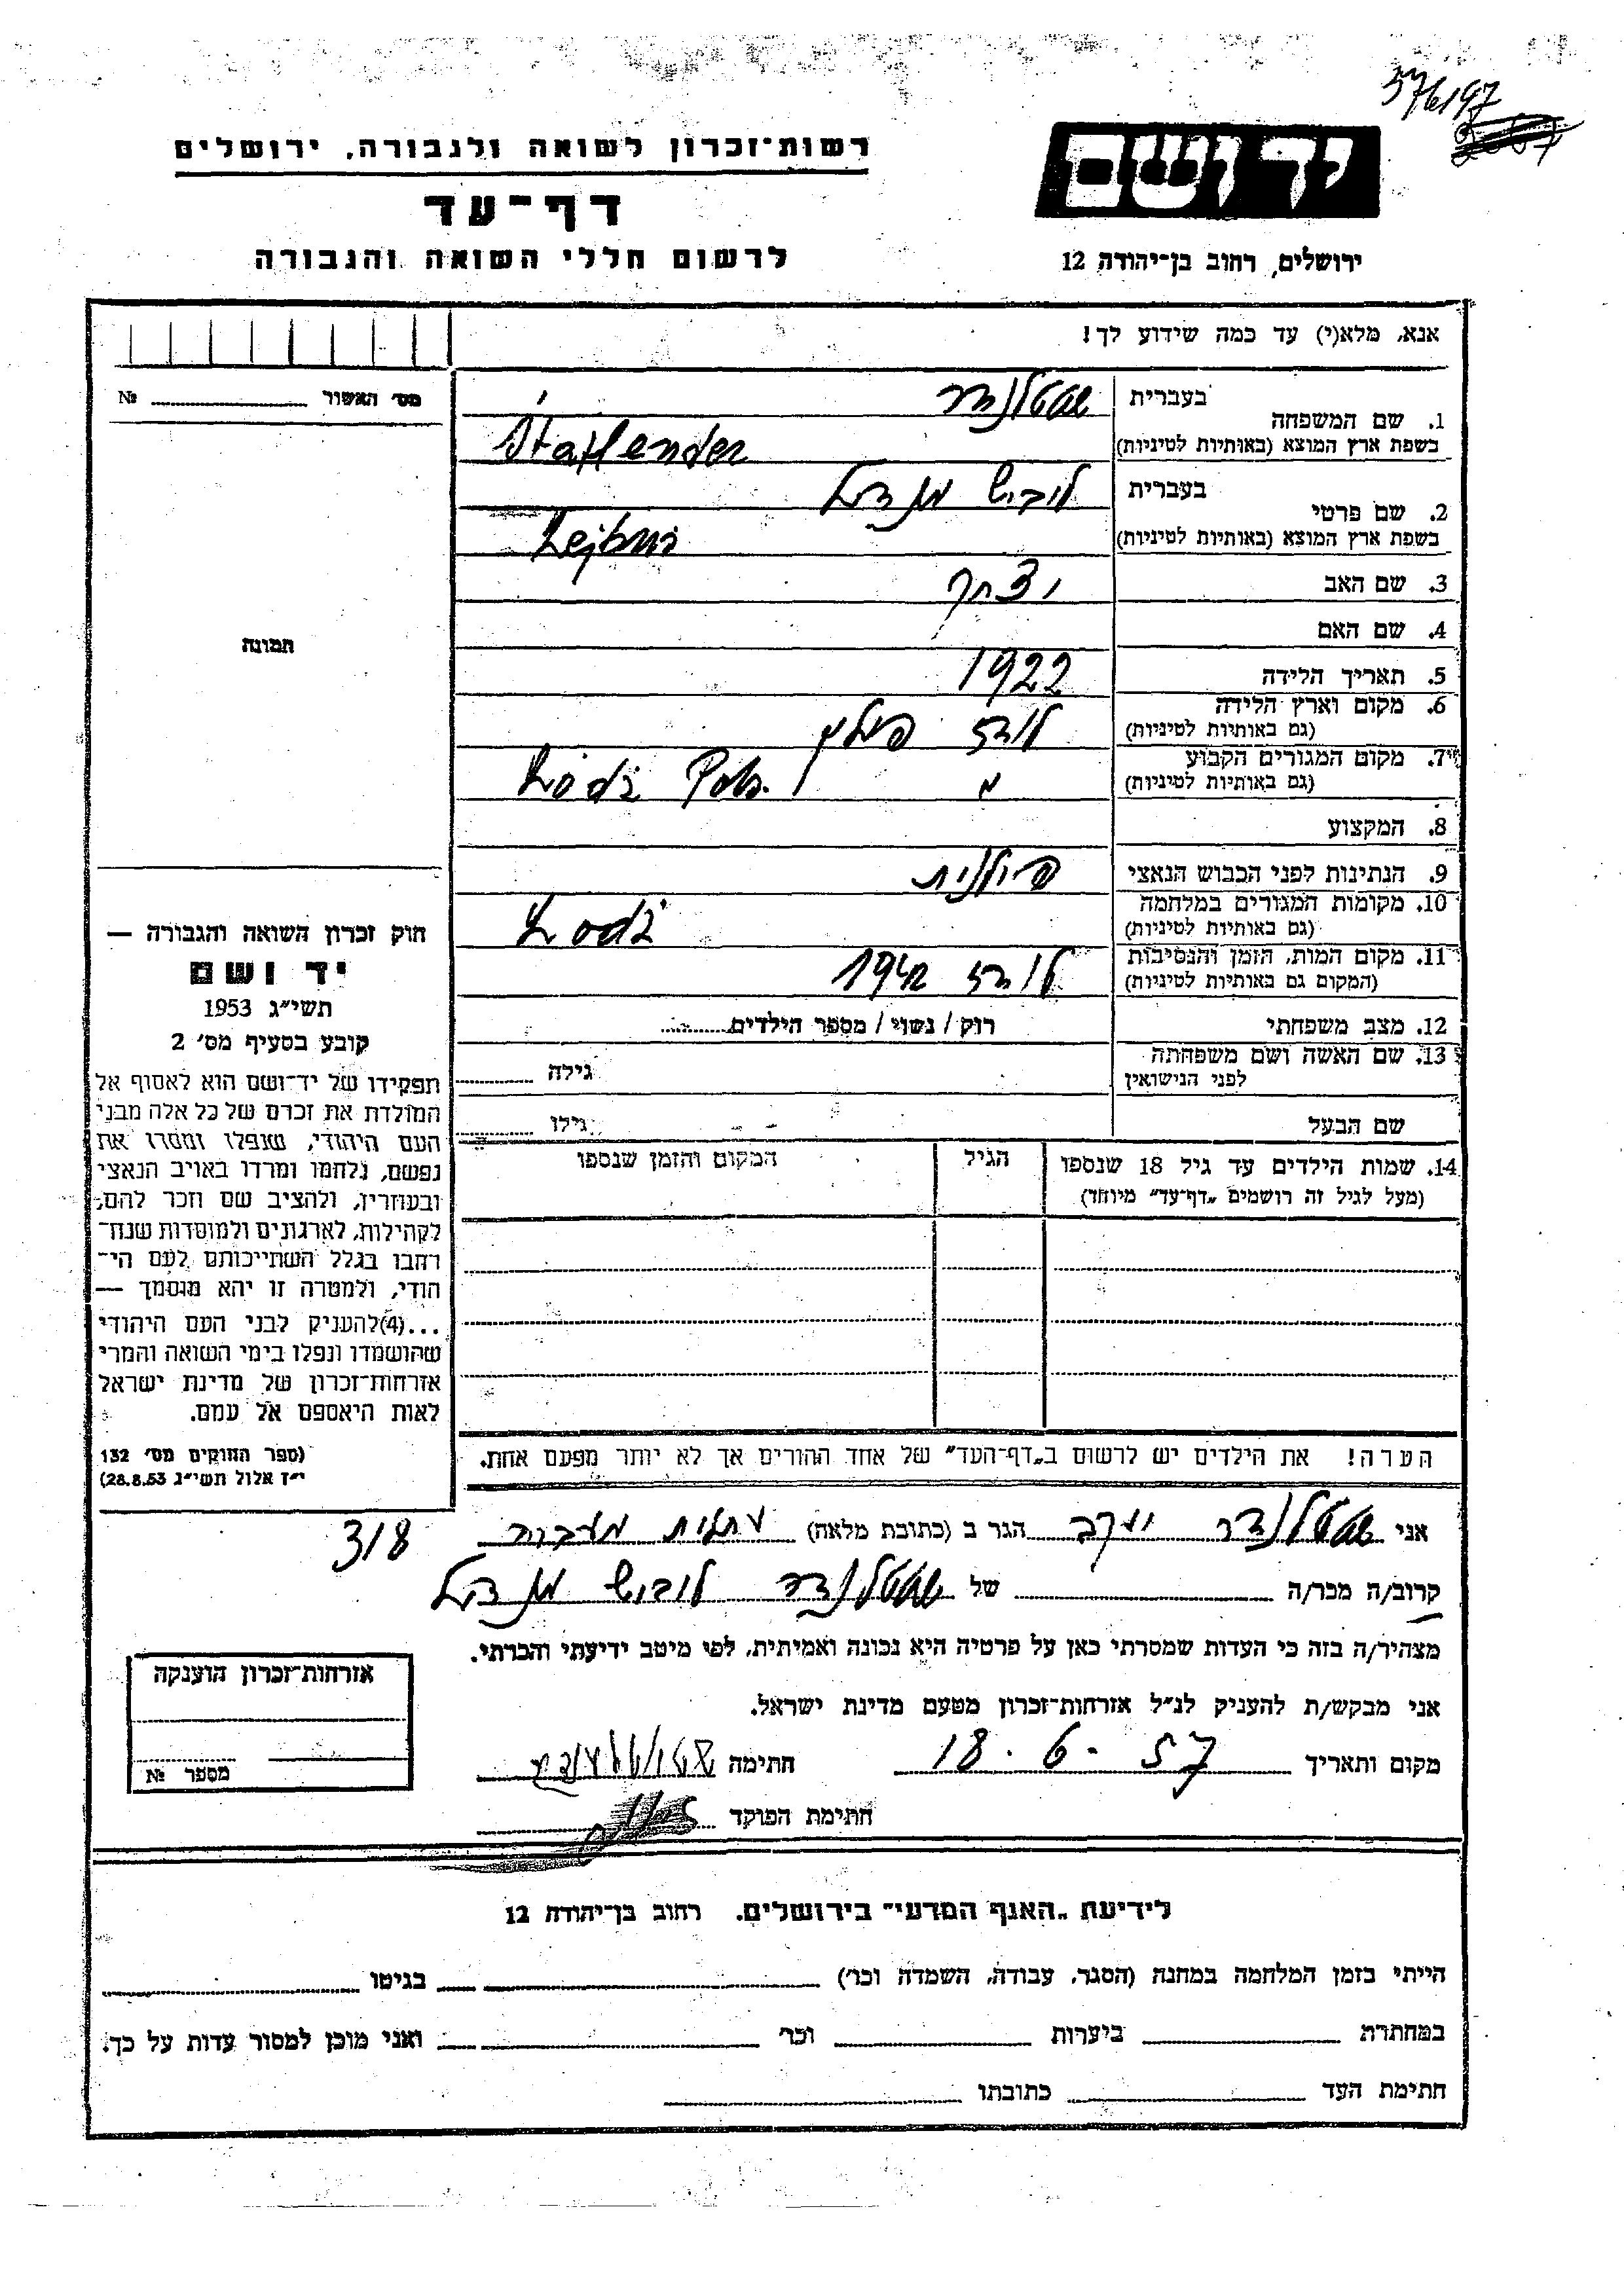 576197
רשות־זכרון לשואה ולגבורה, ירושלים
יד ושם
דף־עד
לרשום חללי השואה והגבורה
ירושלים, רחוב בן־יהודה 12
אנא, מלא(י) עד כמה שידוע לך!
מס׳ האשור № 
1. שם המשפחה בעברית שטטלנדר
בשפת ארץ המוצא (באותיות לטיניות) Statlender
2. שם פרטי בעברית לוביש מנדל
בשפת ארץ המוצא (באותיות לטיניות) Lejbus
3. שם האב יצחק
4. שם האם
תמונה
5. תאריך הלידה 1922
6. מקום וארץ הלידה לודז פולין
(גם באותיות לטיניות)
7. מקום המגורים הקבוע
(גם באותיות לטיניות) Łódź Pols.
8. המקצוע
9. הנתינות לפני הכבוש הנאצי פולנית
10. מקומות המגורים במלחמה
(גם באותיות לטיניות) Łodź
11. מקום המות, הזמן והנסיבות לודז 1942
(המקום גם באותיות לטיניות)
12. מצב משפחתי רוק / נשוי / מספר הילדים
13. שם האשה ושם משפחתה גילה
לפני הנישואין
שם הבעל גילו
14. שמות הילדים עד גיל 18 שנספו הגיל המקום והזמן שנספו
(מעל לגיל זה רושמים „דף־עד״ מיוחד)
חוק זכרון השואה והגבורה —
יד ושם
תשי״ג 1953
קובע בסעיף מס׳ 2
תפקידו של יד־ושם הוא לאסוף אל
המולדת את זכרם של כל אלה מבני
העם היהודי, שנפלו ומסרו את
נפשם, נלחמו ומרדו באויב הנאצי
ובעוזריו, ולהציב שם וזכר להם,
לקהילות, לארגונים ולמוסדות שנח־
רבו בגלל השתייכותם לעם הי־
הודי, ולמטרה זו יהא מוסמך —
...(4) להעניק לבני העם היהודי
שהושמדו ונפלו בימי השואה והמרי
אזרחות־זכרון של מדינת ישראל
לאות היאספם אל עמם.
(ספר החוקים מס׳ 132
י״ז אלול תשי״ג 28.8.53)
הערה! את הילדים יש לרשום ב„דף־העד״ של אחד ההורים אך לא יותר מפעם אחת.
אני שטטלנדר יעקב הגר ב (כתובת מלאה) עתלית מעברה 318
קרוב/ה מכר/ה של שטטלנדר לוביש מנדל
מצהיר/ה בזה כי העדות שמסרתי כאן על פרטיה היא נכונה ואמיתית, לפי מיטב ידיעתי והכרתי.
אני מבקש/ת להעניק לנ״ל אזרחות־זכרון מטעם מדינת ישראל.
מקום ותאריך 18.6.57 חתימה
חתימת הפוקד
אזרחות־זכרון הוענקה
מספר №
לידיעת „האגף המדעי״ בירושלים. רחוב בן־יהודה 12
הייתי בזמן המלחמה במחנה (הסגר, עבודה, השמדה וכר׳) בגיטו
במחתרת ביערות וכר׳ ואני מוכן למסור עדות על כך.
חתימת העד כתובתו